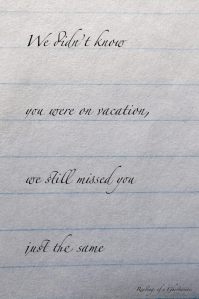 We didn't know
you were on vacation,
we still missed you
just the same